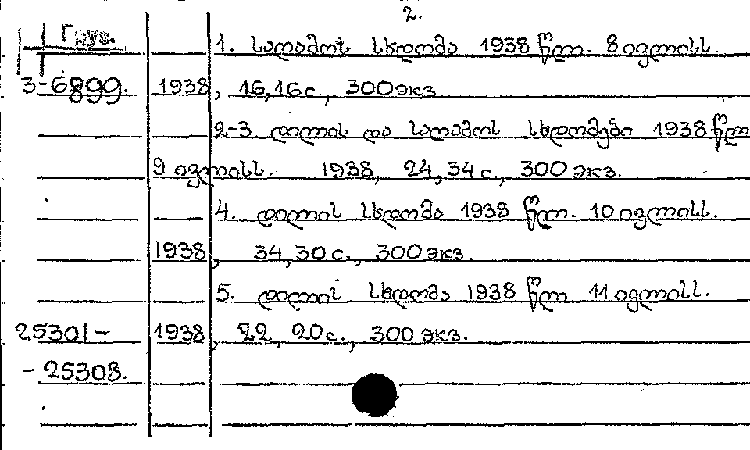 2.
1. საღამოს სხდომა 1938 წლ. 8 ივლისს.
3-6899. 1938, 16,16 с., 300 экз
2-3 დილის და საღამოს სხდომები 1938 წლ
9 ივლისს. 1938, 24,34 с., 300 экз.
4. დილის სხდომა 1938 წლ. 10 ივლისს.
1938, 34,30 с., 300 экз.
5. დილის სხდომა 1938 წლ. 11 ივლისს.
25301- 1938, 22, 20 с., 300 экз.
-25308.